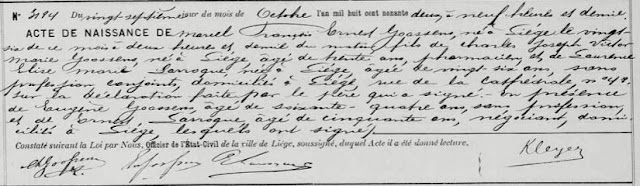 N° 3194 Du vingt-septième jour du mois de Octobre l'an mil huit cent nonante deux à neuf heures et demie.
ACTE DE NAISSANCE de Marcel François Ernest Goossens, né à Liège le vingt-
six de ce mois à deux heures et demie du matin, fils de Charles Joseph Victor
Marie Goossens, né à Liège, âgé de trente ans, pharmacien, et de Laurence
Elise Marie Laroque, née à Liège, âgée de vingt six ans, sans
profession, conjoints, domiciliés à Liège, rue de la Cathédrale, n° 48.
Sur la déclaration faite par le père qui a signé en présence
de Eugène Goossens, âgé de soixante-quatre ans, sans profession,
et de Ernest Laroque, âgé de cinquante ans, négociant, domi-
ciliés à Liège, lesquels ont signé.
Constaté suivant la Loi par Nous, Officier de l'État-Civil de la ville de Liège, soussigné, duquel Acte il a été donné lecture.
Kleyer